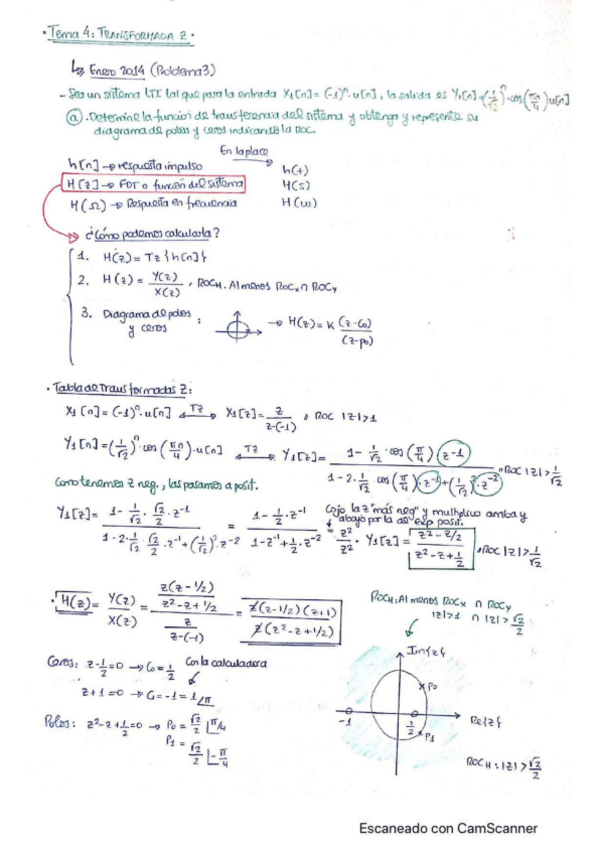 · Tema 4: TRANSFORMADA Z ·
↳ Enero 2014 (Problema 3)
- Sea un sistema LTI tal que para la entrada X₁[n] = (-1)ⁿ·u[n], la salida es Y₁[n] = (1/√2)ⁿ·cos(πn/4)u[n]
ⓐ. Determine la función de transferencia del sistema y obtenga y represente su
diagrama de polos y ceros indicando la ROC.
En laplace
h[n] → respuesta impulso h(t)
H[z] → FDT o función del sistema H(s)
H(Ω) → Respuesta en frecuencia H(ω)
¿Cómo podemos calcularla?
1. H(z) = Tz{h[n]}
2. H(z) = Y(z)/X(z), ROC_H. Al menos ROCx ∩ ROCy
3. Diagrama de polos y ceros : → H(z) = K (z-c₀)/(z-p₀)
· Tabla de Transformadas Z:
X₁[n] = (-1)ⁿ·u[n] ⟷TZ X₁[z] = z/(z-(-1)), ROC |z|>1
Y₁[n] = (1/√2)ⁿ cos(πn/4)·u[n] ⟷TZ Y₁[z] = (1 - 1/√2·cos(π/4) z^-1)/(1-2·1/√2 cos(π/4)·z^-1+(1/√2)²·z^-2), ROC |z|>1/√2
Como tenemos z neg., las pasamos a posit.
Cojo la z "más neg" y multiplico arriba y
abajo por la de exp posit.
Y₁[z] = (1 - 1/√2·√2/2·z^-1)/(1-2·1/√2·√2/2·z^-1+(1/√2)²·z^-2) = (1-1/2·z^-1)/(1-z^-1+1/2·z^-2) = z²/z²· Y₁[z] = (z²-z/2)/(z²-z+1/2), ROC |z|>1/√2
· H(z) = Y(z)/X(z) = (z(z-1/2)/(z²-z+1/2))/(z/(z-(-1))) = z(z-1/2)(z+1)/z(z²-z+1/2)
ROC_H: Al menos ROCx ∩ ROCy
|z|>1 ∩ |z|>√2/2
Ceros: z-1/2=0 → C₀=1/2 Con la calculadora
z+1=0 → C₁=-1=1∠π
Polos: z²-z+1/2=0 → P₀=√2/2 ∠π/4
P₁=√2/2 ∠-π/4
Im{z}
P₀
-1 1/2 P₁ Re{z}
ROC_H: |z|>√2/2
Escaneado con CamScanner